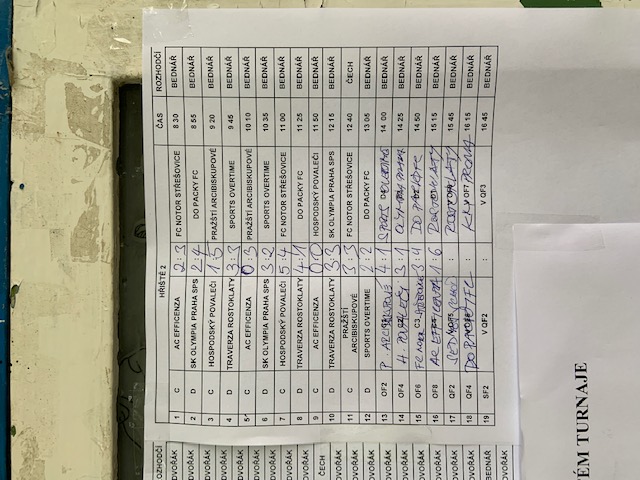 HŘIŠTĚ 2 ČAS ROZHODČÍ
1 C AC EFFICENZA 2:3 FC NOTOR STŘEŠOVICE 8 30 BEDNÁŘ
2 D SK OLYMPIA PRAHA SPS 2:4 DO PACKY FC 8 55 BEDNÁŘ
3 C HOSPODSKÝ POVALEČI 1:5 PRAŽŠTÍ ARCIBISKUPOVÉ 9 20 BEDNÁŘ
4 D TRAVERZA ROSTOKLATY 3:3 SPORTS OVERTIME 9 45 BEDNÁŘ
5* C AC EFFICENZA 0:3 PRAŽŠTÍ ARCIBISKUPOVÉ 10 10 BEDNÁŘ
6 D SK OLYMPIA PRAHA SPS 3:2 SPORTS OVERTIME 10 35 BEDNÁŘ
7 C HOSPODSKÝ POVALEČI 5:4 FC NOTOR STŘEŠOVICE 11 00 BEDNÁŘ
8 D TRAVERZA ROSTOKLATY 4:1 DO PACKY FC 11 25 BEDNÁŘ
9 C AC EFFICENZA 0:0 HOSPODSKÝ POVALEČI 11 50 BEDNÁŘ
10 D TRAVERZA ROSTOKLATY 3:3 SK OLYMPIA PRAHA SPS 12 15 BEDNÁŘ
11 C PRAŽŠTÍ ARCIBISKUPOVÉ 3:3 FC NOTOR STŘEŠOVICE 12 40 ČECH
12 D SPORTS OVERTIME 2:2 DO PACKY FC 13 05 BEDNÁŘ
13 OF2 4:1 SPORTS 14 00 BEDNÁŘ
14 OF4 H. POVALEČI 3:1 14 25 BEDNÁŘ
15 OF6 C3 3:4 14 50 BEDNÁŘ
16 OF8 AC EFFICENZA 1:6 15 15 BEDNÁŘ
17 QF2 : 15 45 BEDNÁŘ
18 QF4 : OF7 16 15 BEDNÁŘ
19 SF2 V QF2 : V QF3 16 45 BEDNÁŘ
OZHODČÍ
DVOŘÁK
DVOŘÁK
DVOŘÁK
DVOŘÁK
DVOŘÁK
DVOŘÁK
DVOŘÁK
DVOŘÁK
ČECH
DVOŘÁK
DVOŘÁK
DVOŘÁK
DVOŘÁK
DVOŘÁK
DVOŘÁK
DVOŘÁK
DVOŘÁK
DVOŘÁK
BEDNÁŘ
DVOŘÁK
ÉM TURNAJE